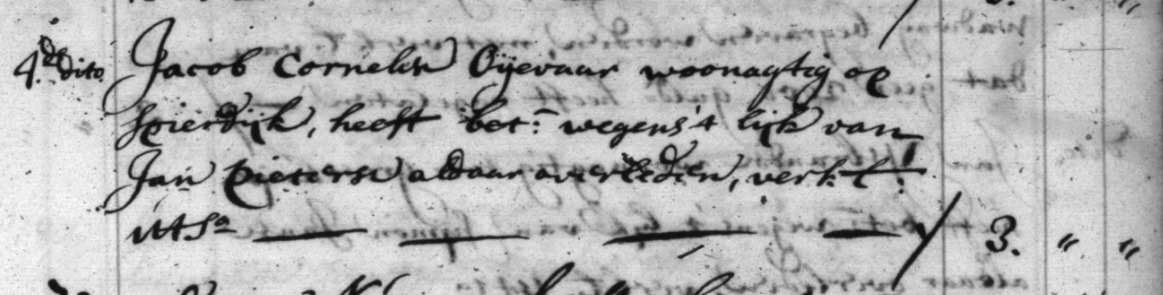 4.de dito. Jacob Cornelisz Oijevaar woonagtig op
Spierdijk, heeft bet:n wegens 't lijk van
Jan Pietersz aldaar overleeden, verk:t
utsa — — — — / 3. " "